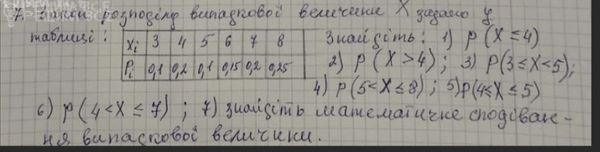 7. Закон розподілу випадкової величини X задано у
таблиці: Xi 3 4 5 6 7 8 Знайдіть: 1) P(X≤4)
Pi 0,1 0,2 0,1 0,15 0,2 0,25 2) P(X>4); 3) P(3≤X<5);
4) P(5<X≤8); 5) P(4≤X≤5)
6) P(4<X≤7); 7) знайдіть математичне сподіван-
ня випадкової величини.